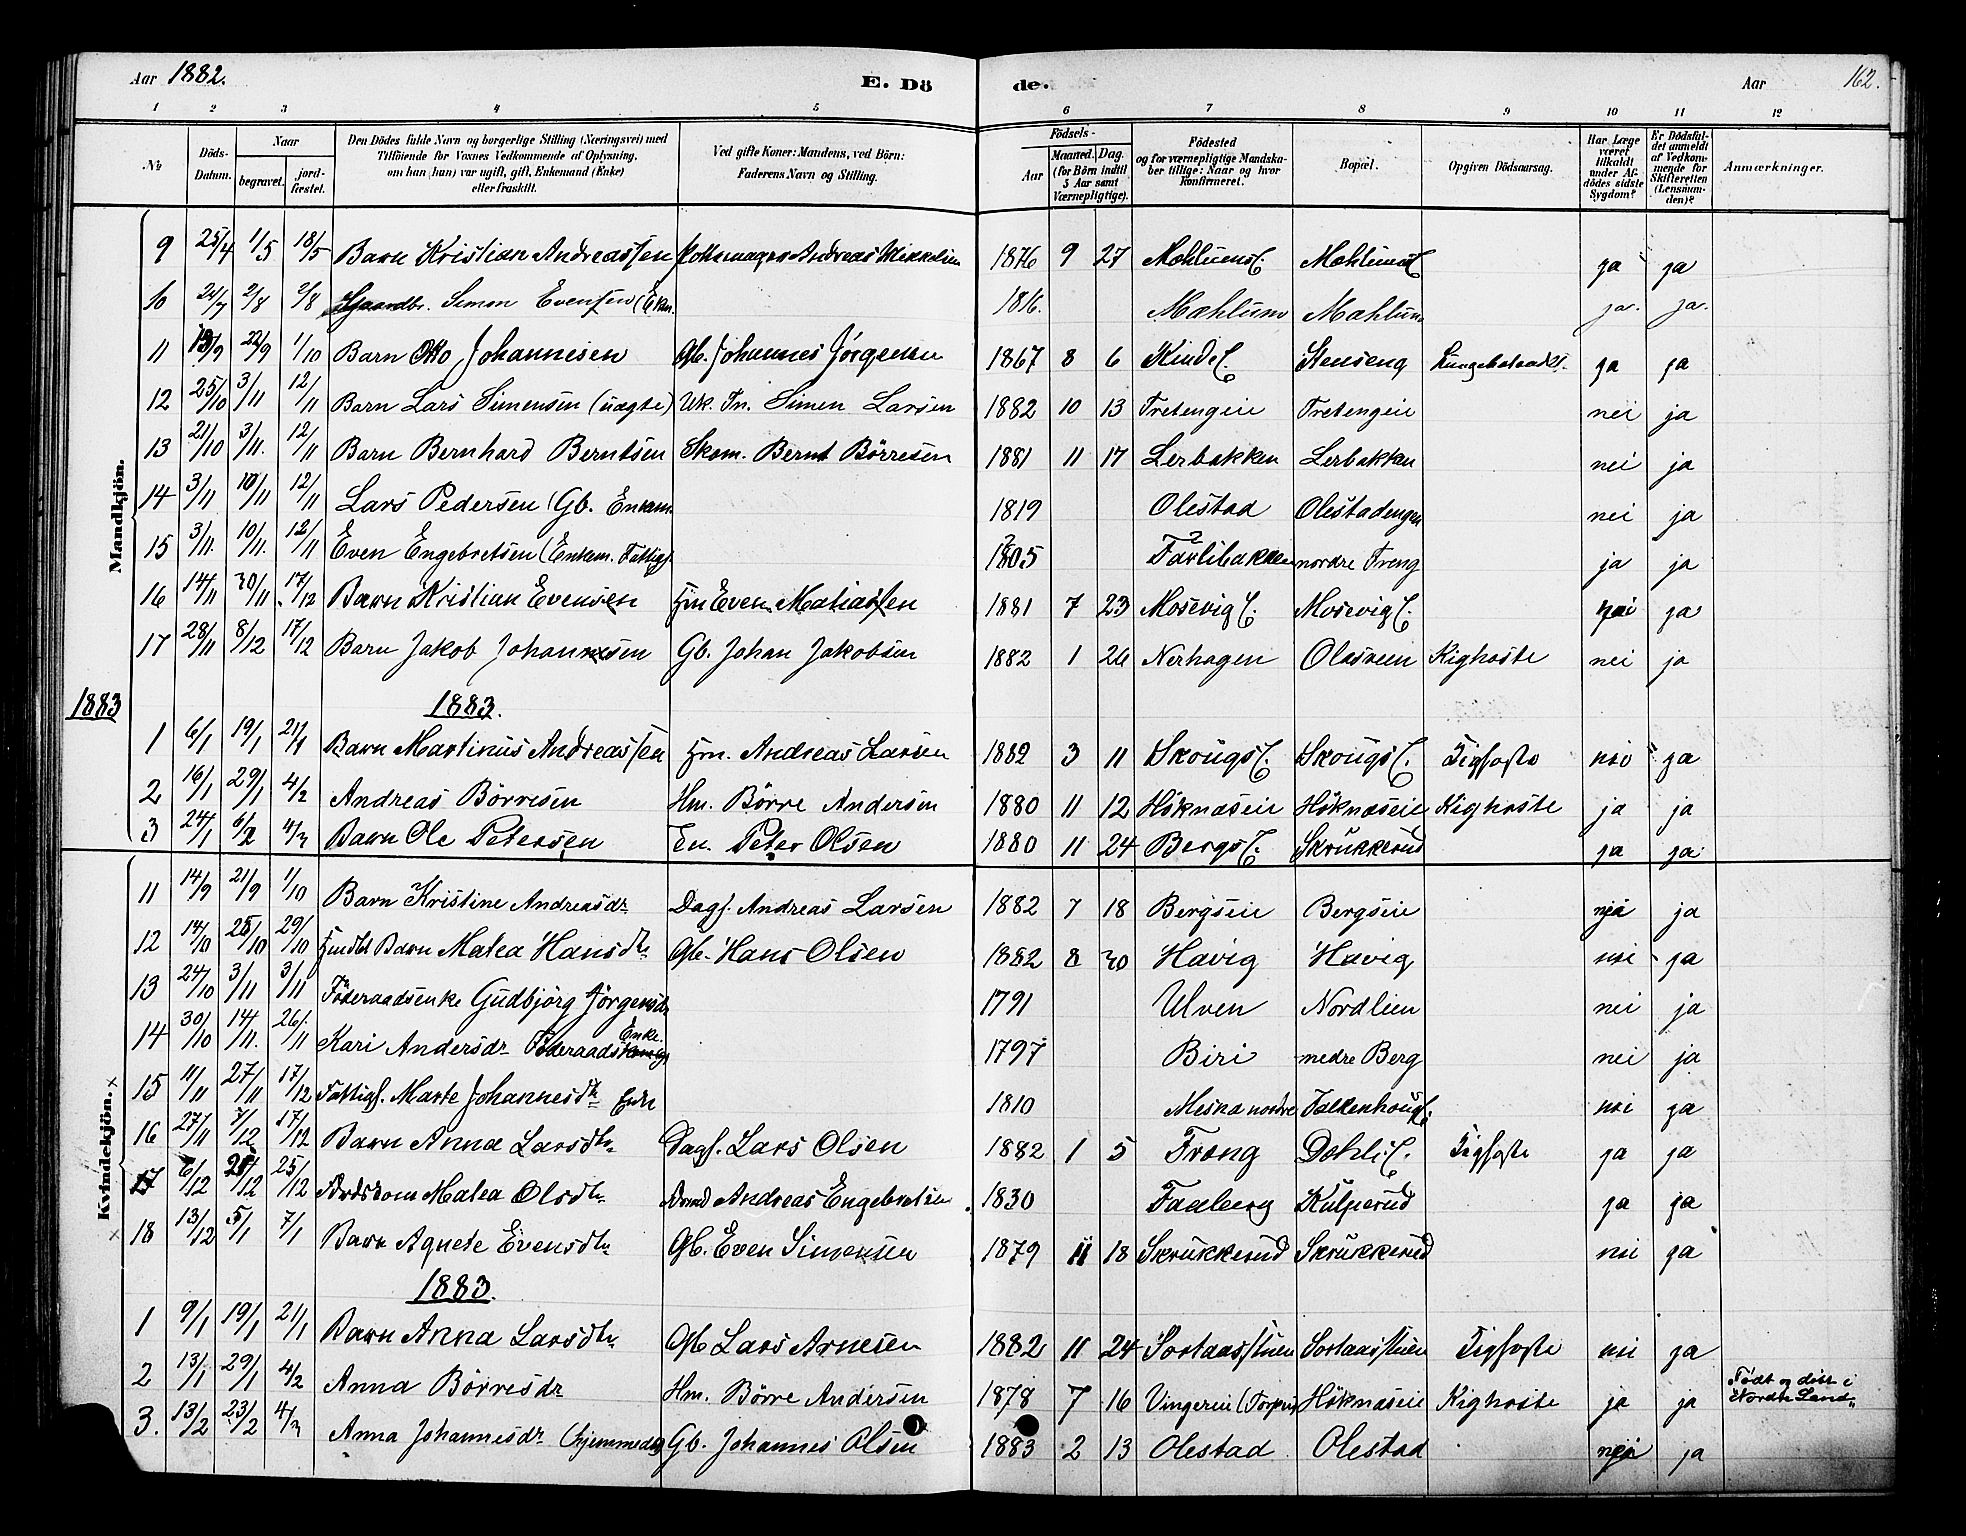 Aar 1882. E. Dö de. Aar 162.
1 2 3 4 5 6 7 8 9 10 11 12
No. Döds-Datum. Naar begravet. jordfæstet. Den Dödes fulde Navn og borgerlige Stilling (Næringsvei) med Tilföiende for Voxnes Vedkommende af Oplysning, om han (hun) var ugift, gift, Enkemand (Enke) eller fraskilt. Ved gifte Koner: Mandens, ved Börn: Faderens Navn og Stilling. Födsels- Aar Maaned. Dag. (for Börn indtil 5 Aar samt Værnepligtige). Födested og for værnepligtige Mandskaber tillige: Naar og hvor Konfirmeret. Bopæl. Opgiven Dödsaarsag. Har Læge været tilkaldt under Afdödes sidste Sygdom? Er Dödsfaldet anmeldt af Vedkommende for Skifteretten (Lensmanden)? Anmærkninger.
Mandkjön.
9 25/4 1/5 18/5 Barn Kristian Andreassen Andreas Mikkelsen 1876 9 27 Mæhlumsc. Mæhlumsc ja ja
10 24/7 2/8 2/8 Gaardbr. Simon Evensen (Ekm. 1816. Mæhlum Mæhlum ja. ja.
11 13/9 22/9 1/10 Barn Otto Johannesen Gb. Johannes Jörgensen 1867 8 6 Kindlc. Stenseng ja ja
12 25/10 3/11 12/11 Barn Lars Simensen (uægte) Uk. Tn. Simen Larsen 1882 10 13 Tretengeie Tretengeie nei ja
13 21/10 3/11. 12/11 Barn Bernhard Berntsen Skom. Bernt Börresen 1881 11 17 Lerbakken Lerbakken nei ja
14 3/11 10/11 12/11 Lars Pedersen (Gb. Enkem. 1819 Olestad Olestadengen nei ja
15 3/11. 10/11. 12/11 Even Engebretsen (Enkem. Fattigf. 1805 Farlibakken nordre Treng ja ja
16 14/11 30/11. 17/12 Barn Kristian Evensen Hm Even Mathiassen 1881 7 23 Mosevig C. Mosevig C. nei ja
17 28/11 8/12 17/12 Barn Jakob Johannesen Gb. Johan Jakobsen 1882 1 26 Nerhagen Olasveen Kighoste nei ja
1883 1883.
1 6/1 19/1 21/1 Barn Martinus Andreassen Hm. Andreas Larsen 1882 3 11 Skougs C. Skougs C. Kighoste nei ja
2 16/1 29/1 4/2 Andreas Börresen Hm. Börre Andersen 1880 11 12 Höknæseie Höknæseie Kighoste ja ja
3 24/1 6/2 4/3 Barn Ole Petersen En. Peter Olsen 1880 11 24 Bergs C. Skrukkerud ja ja
Kvindekjön.
11 14/9 21/9 1/10 Barn Kristine Andreasdr Dagf. Andreas Larsen 1882 7 18 Bergseie Bergseie nei ja
12 14/10 25/10 29/10 Barn Matea Hansdtr Gb. Hans Olsen 1882 8 30 Havig Havig nei ja
13 24/10 3/11 3/11 Föderaadsenke Gudbjörg Jörgensdr 1791 Ulven Nordlien nei ja
14 30/10 14/11. 26/11 Kari Andersdr Föderaadskone Enke. 1797 Biri nedre Berg nei ja
15 11/11 27/11 17/12 Fattigf. Marte Johannesdtr Enke 1810 Mesna nordre Falkenhoug C. nei ja
16 27/11 7/12 17/12 Barn Anna Larsdtr Dagf. Lars Olsen 1882 1 5 Træng Dæhli C. Kighoste ja ja
17 6/12 25/12 25/12 Matea Olsdtr Andreas Engebretsen 1830 Faaberg Kulperud ja ja
18 13/12 5/1 7/1 Barn Agnete Evensdtr Gb. Even Simensen 1879 11 18 Skrukkerud Skrukkerud nei ja
1883.
1 9/1 19/1 21/1 Barn Anna Larsdtr Gb Lars Arnesen 1882 11 24 Sortaasstuen Sortaasstuen Kighoste nei ja
2 13/1 29/1 4/2 Anna Börresdr Hm. Börre Andersen 1878 7 16 Vingereie (Torpen Höknæseie Kighoste ja ja Födt og döbt i Nordr. Land.
3. 13/2 23/2 4/3 Anna Johannesdr (hjemmedöbt Gb. Johannes Olsen 1883 2 13 Olestad Olestad nei ja